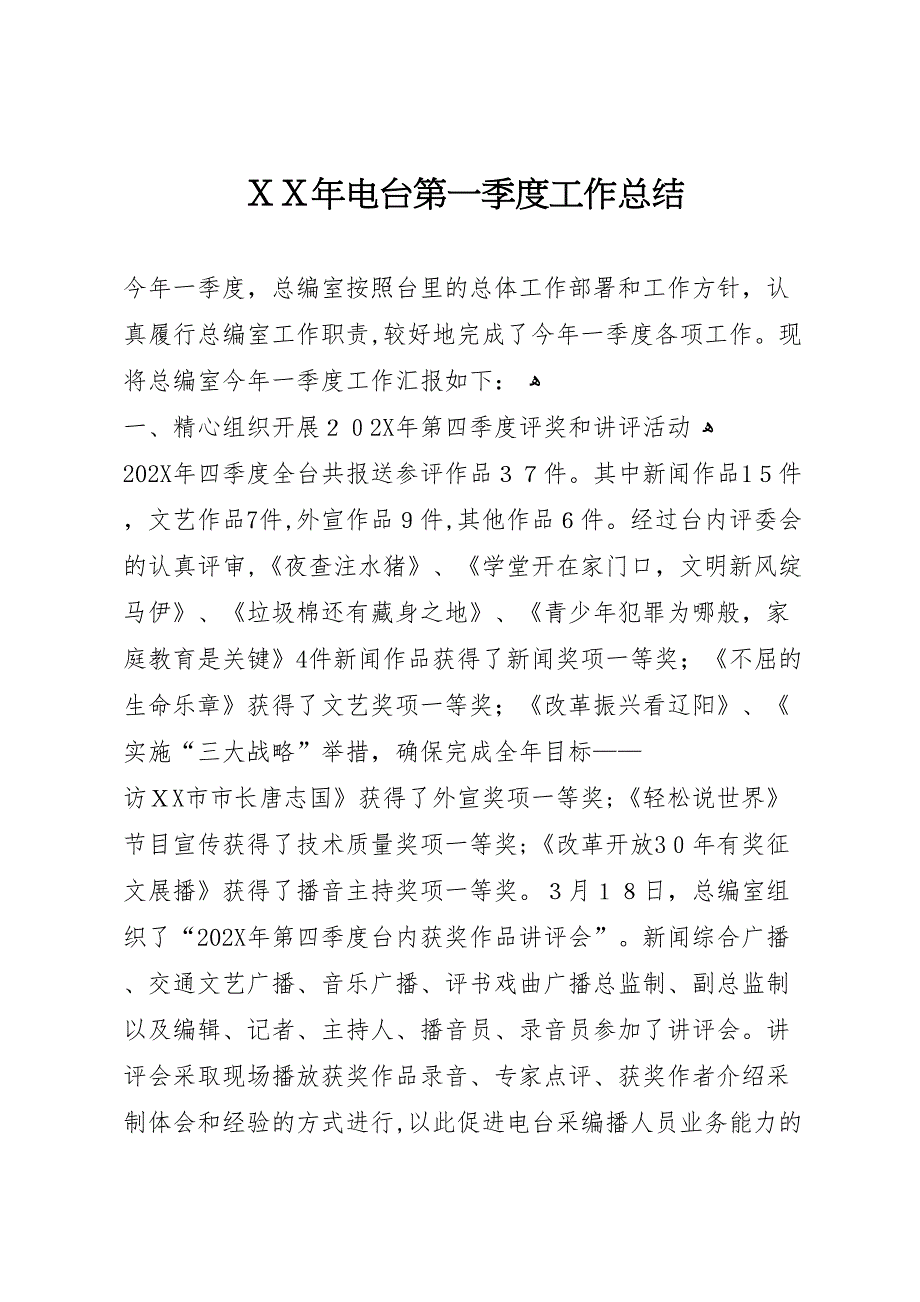 ＸＸ年电台第一季度工作总结
今年一季度，总编室按照台里的总体工作部署和工作方针，认
真履行总编室工作职责,较好地完成了今年一季度各项工作。现
将总编室今年一季度工作汇报如下： ﻫ
一、精心组织开展２０2X年第四季度评奖和讲评活动 ﻫ
202X年四季度全台共报送参评作品３７件。其中新闻作品1５件
，文艺作品7件,外宣作品９件,其他作品６件。经过台内评委会
的认真评审,《夜查注水猪》、《学堂开在家门口，文明新风绽
马伊》、《垃圾棉还有藏身之地》、《青少年犯罪为哪般，家
庭教育是关键》4件新闻作品获得了新闻奖项一等奖；《不屈的
生命乐章》获得了文艺奖项一等奖；《改革振兴看辽阳》、《
实施“三大战略”举措，确保完成全年目标——
访ＸX市市长唐志国》获得了外宣奖项一等奖;《轻松说世界》
节目宣传获得了技术质量奖项一等奖;《改革开放3０年有奖征
文展播》获得了播音主持奖项一等奖。３月１８日，总编室组
织了“202X年第四季度台内获奖作品讲评会”。新闻综合广播
、交通文艺广播、音乐广播、评书戏曲广播总监制、副总监制
以及编辑、记者、主持人、播音员、录音员参加了讲评会。讲
评会采取现场播放获奖作品录音、专家点评、获奖作者介绍采
制体会和经验的方式进行,以此促进电台采编播人员业务能力的